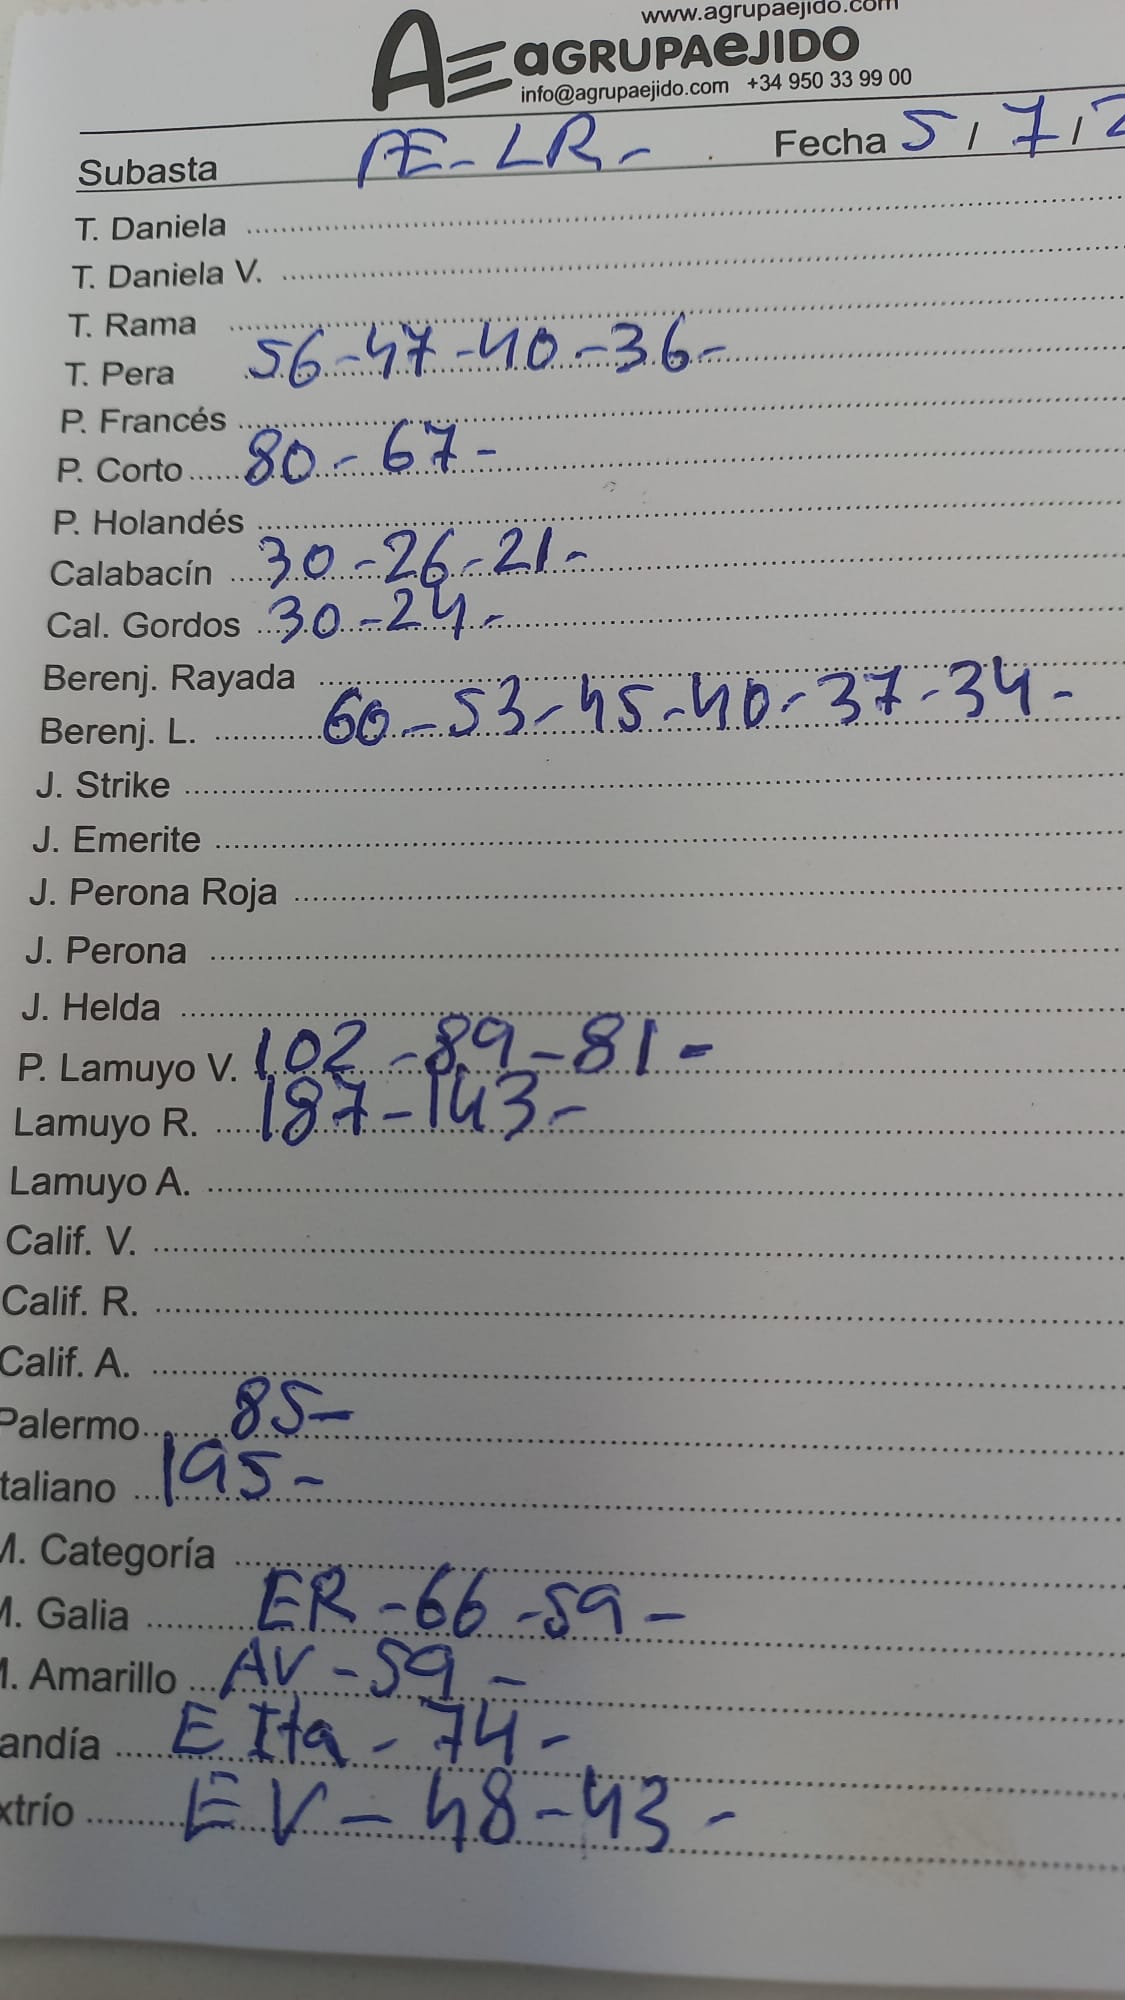 www.agrupaejido.com
AE aGRUPAeJIDO
info@agrupaejido.com +34 950 33 99 00
Subasta AE-LR- Fecha 5/7/2
T. Daniela
T. Daniela V.
T. Rama
T. Pera 56-47-40-36-
P. Francés
P. Corto 80-67-
P. Holandés
Calabacín 30-26-21-
Cal. Gordos 30-24-
Berenj. Rayada
Berenj. L. 60-53-45-40-37-34-
J. Strike
J. Emerite
J. Perona Roja
J. Perona
J. Helda
P. Lamuyo V. 102-89-81-
Lamuyo R. 187-143-
Lamuyo A.
Calif. V.
Calif. R.
Calif. A.
Palermo 85-
taliano 195-
M. Categoría
M. Galia ER-66-59-
M. Amarillo AV-59-
andía E Ita-74-
xtrío EV-48-43-